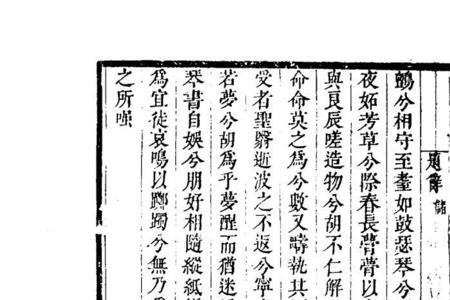 題辭
鶼兮相守至耋如鼓瑟琴兮
夜妬芳草兮際春長膏膏以
與良辰嗟造物兮胡不仁解
命命莫之為兮數又疇執其
受者聖緡逝波之不返兮寧
若夢兮胡為乎夢醒而猶迷
琴書自娛兮朋好相隨縱紙
為宜徒哀鳴以躑躅兮無乃
之所嗤